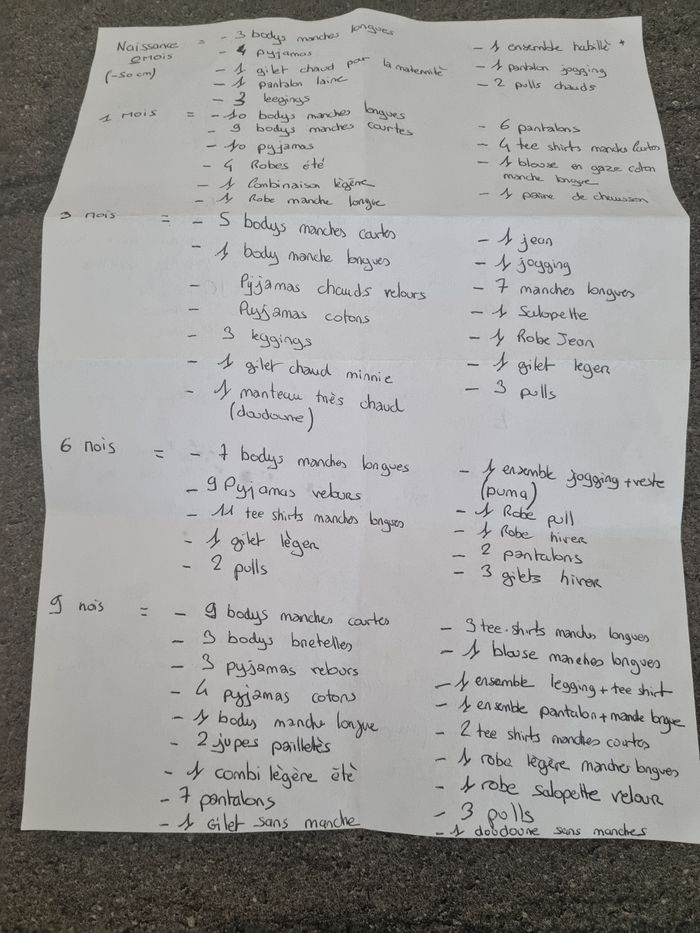 Naissance = - 3 bodys manches longues
0 mois - 4 pyjamas
(-50 cm) - 1 gilet chaud pour la maternité
- 1 pantalon laine
- 3 leegings
- 1 ensemble habillé *
- 1 pantalon jogging
- 2 pulls chauds
1 Mois = - 10 bodys manches longues
- 9 bodys manches courtes
- 10 pyjamas
- 4 Robes été
- 1 Combinaison légère
- 1 Robe manche longue
- 6 pantalons
- 4 tee shirts manches courtes
- 1 blouse en gaze coton
manche longue
- 1 paire de chausson
3 mois = - 5 bodys manches courtes
- 1 body manche longues
- Pyjamas chauds velours
- Pyjamas cotons
- 3 leggings
- 1 gilet chaud minnie
- 1 manteau très chaud
(doudoune)
- 1 jean
- 1 jogging
- 7 manches longues
- 1 Salopette
- 1 Robe Jean
- 1 gilet leger
- 3 pulls
6 mois = - 7 bodys manches longues
- 9 Pyjamas velours
- 11 tee shirts manches longues
- 1 gilet lèger
- 2 pulls
- 1 ensemble jogging + veste
(puma)
- 1 Robe pull
- 1 Robe hiver
- 2 pantalons
- 3 gilets hiver
9 mois = - 9 bodys manches courtes
- 3 bodys bretelles
- 3 pyjamas velours
- 4 pyjamas cotons
- 1 body manche longue
- 2 jupes pailletés
- 1 combi légère été
- 7 pantalons
- 1 Gilet sans manche
- 3 tee-shirts manches longues
- 1 blouse manches longues
- 1 ensemble legging + tee shirt
- 1 ensemble pantalon + manche longue
- 2 tee shirts manches courtes
- 1 robe légère manches longues
- 1 robe salopette velour
- 3 pulls
- 1 doudoune sans manches